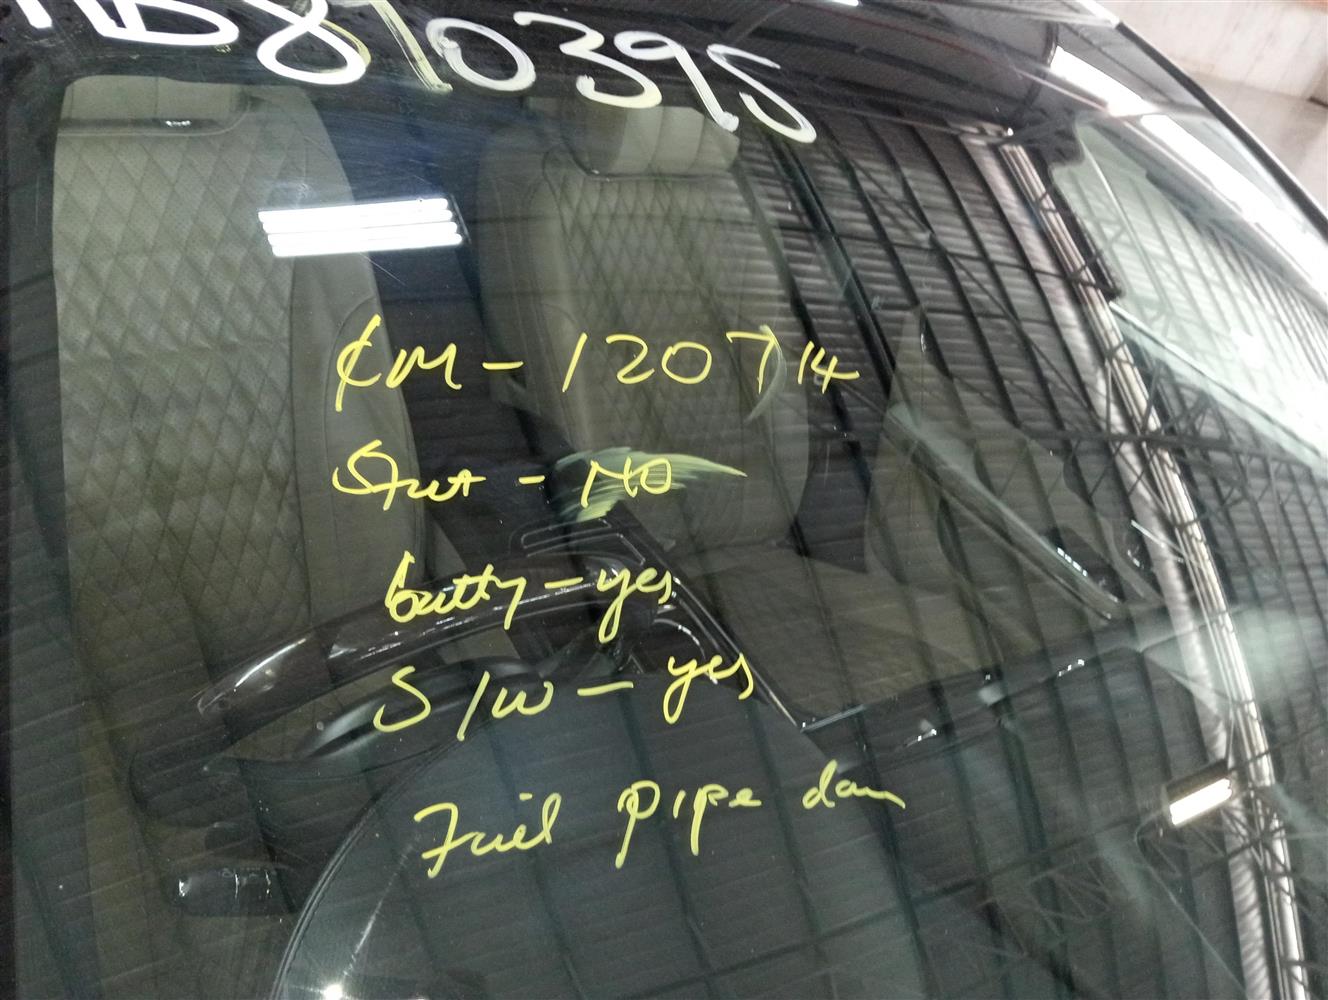 MD870395
KM - 120714
Start - NO
batty - yes
S/W - yes
Fuel pipe dam